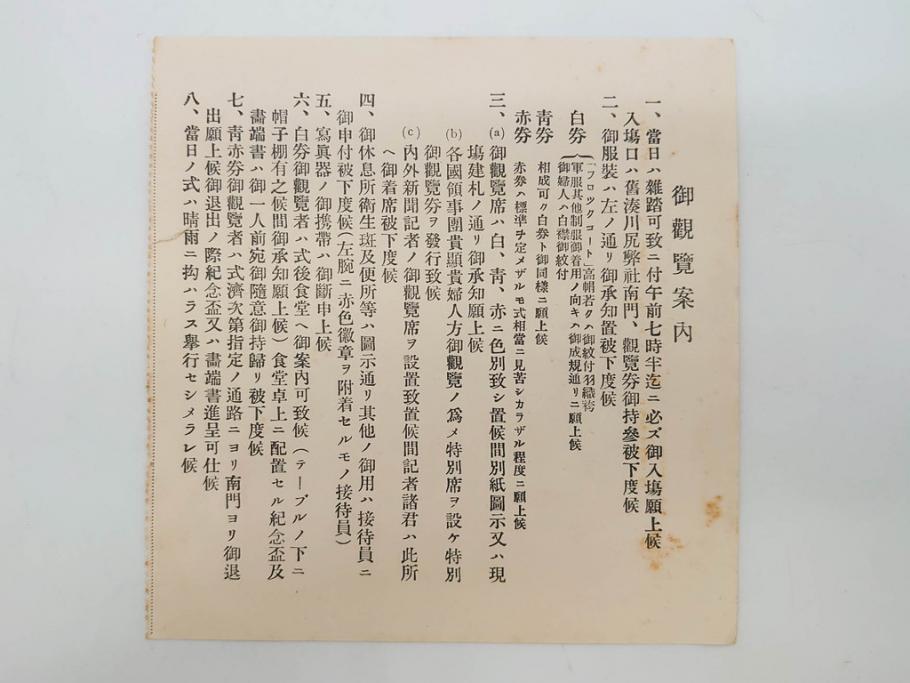 御觀覽案內
一、當日ハ雜踏可致ニ付午前七時半迄ニ必ズ御入場願上候
入場口ハ舊湊川尻弊社南門、觀覽券御持參被下度候
二、御服裝ハ左ノ通リ御承知置被下度候
白券
「フロックコート」高帽若クハ御紋付羽織袴
軍服其他制服御着用ノ向キハ御成規通リニ願上候
御婦人ハ白襟御紋付
靑券 相成可ク白券ト御同樣ニ願上候
赤券 赤券ハ標準ヲ定メザルモ式相當ニ見苦シカラザル程度ニ願上候
三、(a)御觀覽席ハ白、靑、赤ニ色別致シ置候間別紙圖示又ハ現
場建札ノ通リ御承知願上候
(b)各國領事團貴顯貴婦人方御觀覽ノ爲メ特別席ヲ設ケ特別
御觀覽券ヲ發行致候
(c)內外新聞記者ノ御觀覽席ヲ設置致置候間記者諸君ハ此所
ヘ御着席被下度候
四、御休息所衛生斑及便所等ハ圖示通リ其他ノ御用ハ接待員ニ
御申付被下度候(左腕ニ赤色徽章ヲ附着セルモノ接待員)
五、寫眞器ノ御携帶ハ御斷申上候
六、白券御觀覽者ハ式後食堂ヘ御案內可致候(テーブルノ下ニ
帽子棚有之候間御承知願上候)食堂卓上ニ配置セル紀念盃及
畵端書ハ御一人前宛御隨意御持歸リ被下度候
七、靑赤券御觀覽者ハ式濟次第指定ノ通路ニヨリ南門ヨリ御退
出願上候御退出ノ際紀念盃又ハ畵端書進呈可仕候
八、當日ノ式ハ晴雨ニ拘ハラス舉行セシメラレ候